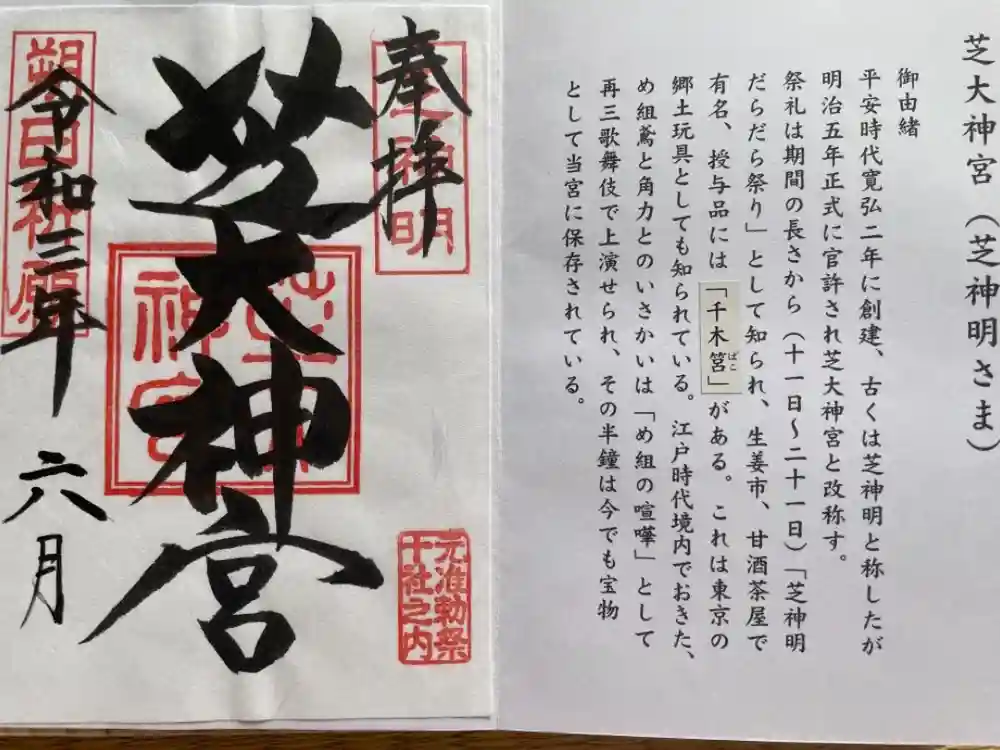 芝大神宮（芝神明さま）
御由緒
平安時代寛弘二年に創建、古くは芝神明と称したが
明治五年正式に官許され芝大神宮と改称す。
祭礼は期間の長さから（十一日～二十一日）「芝神明
だらだら祭り」として知られ、生姜市、甘酒茶屋で
有名、授与品には「千木筥」がある。これは東京の
ばこ
郷土玩具としても知られている。江戸時代境内でおきた、
め組鳶と角力とのいさかいは「め組の喧嘩」として
再三歌舞伎で上演せられ、その半鐘は今でも宝物
として当宮に保存されている。
奉拝
芝大神宮
令和三年六月
朔日社願
芝大神宮
元准勅祭
十社之内